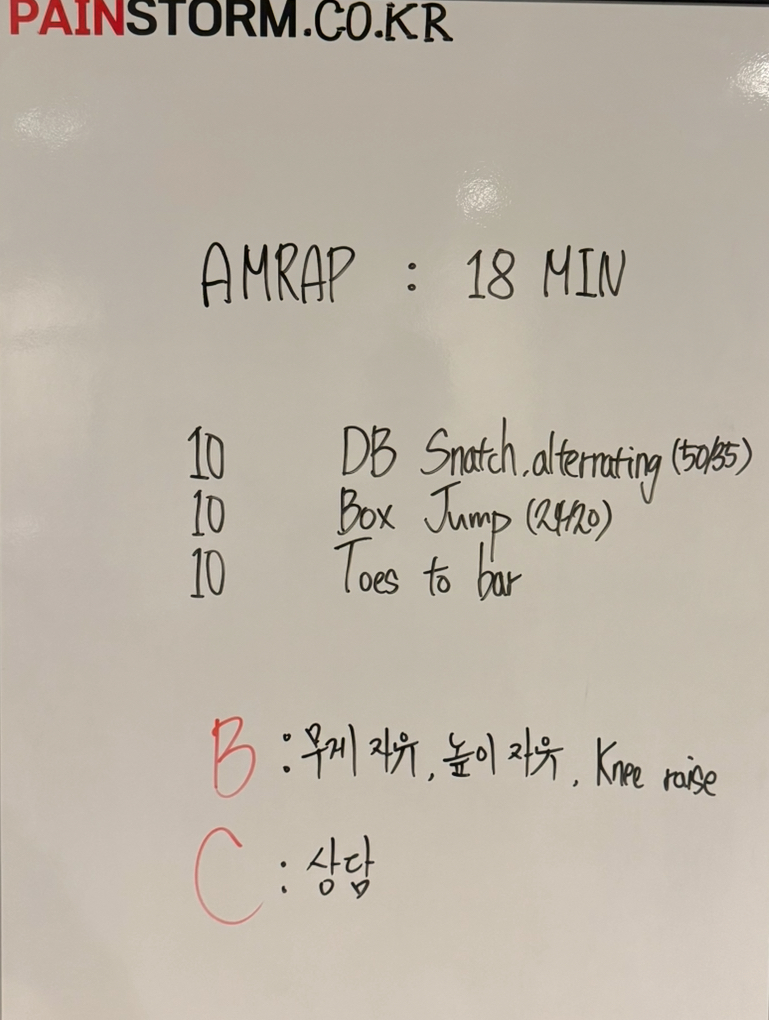 PAINSTORM.CO.KR
AMRAP : 18 MIN
10 DB Snatch, alternating (50/35)
10 Box Jump (24/20)
10 Toes to bar
B : 무게 자유, 높이 자유, Knee raise
C : 상담